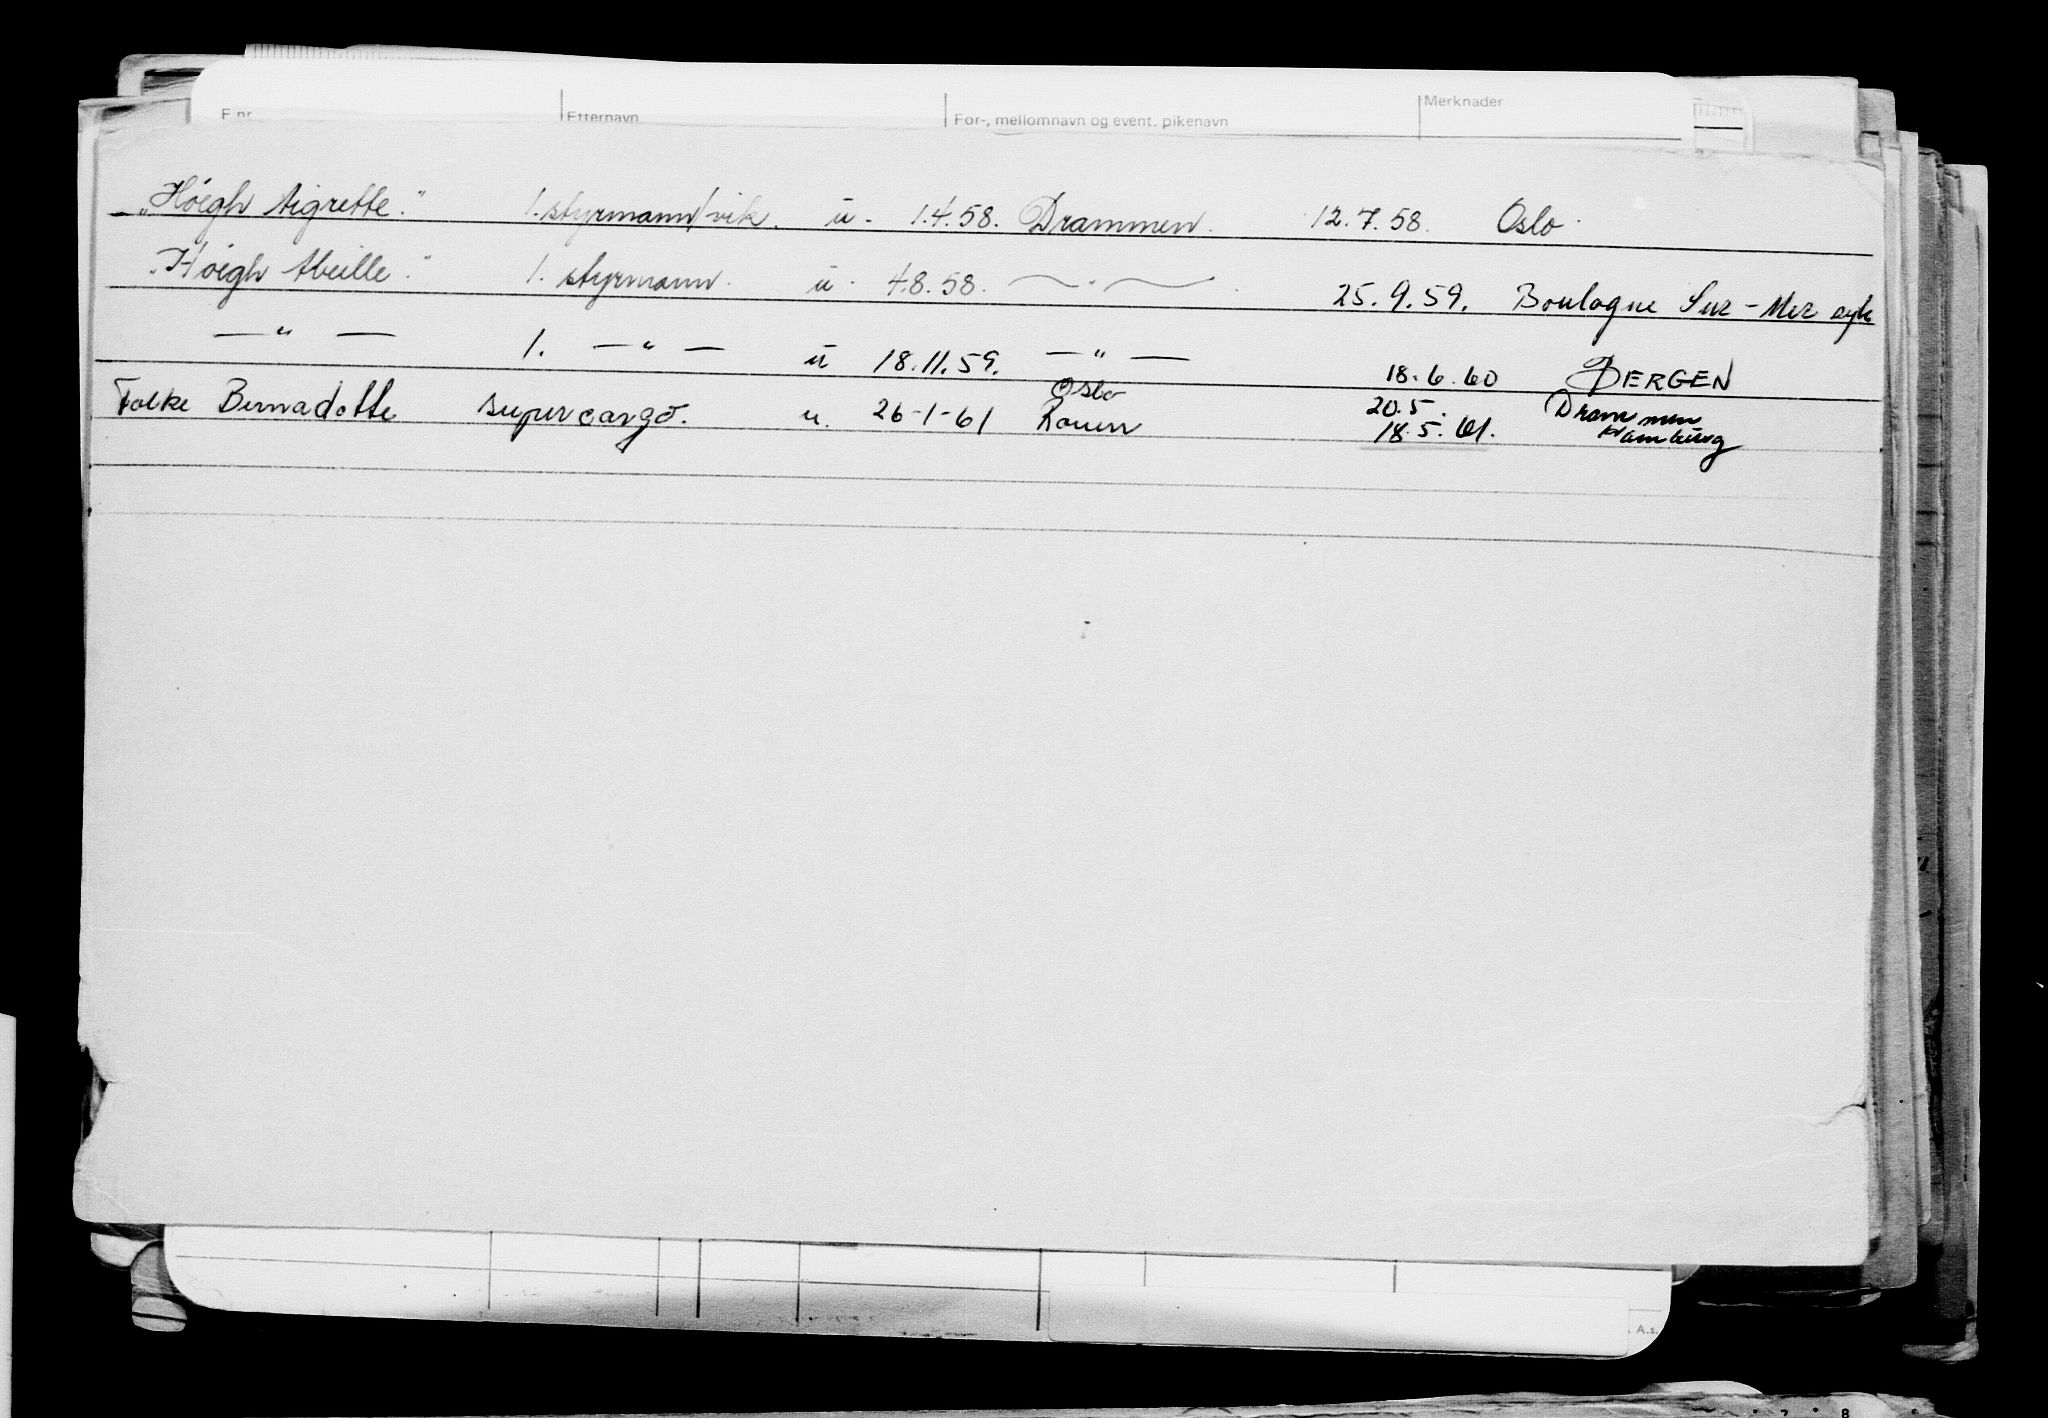 F.nr. Etternavn For-, mellomnavn og event. pikenavn Merknader
"Höegh Aigrette." 1. styrmann/vik. u. 1.4.58. Drammen. 12.7.58. Oslo.
"Höegh Abeille." 1. styrmann. u. 4.8.58. — " — . 25.9.59. Boulogne Sur-Mer syk
— " — 1. — " — u 18.11.59. — " — 18.6.60 BERGEN
Oslo 20.5. Drammen
Folke Bernadotte supercargo. u. 26-1-61 Rouen 18.5.61. Hamburg
A.s.